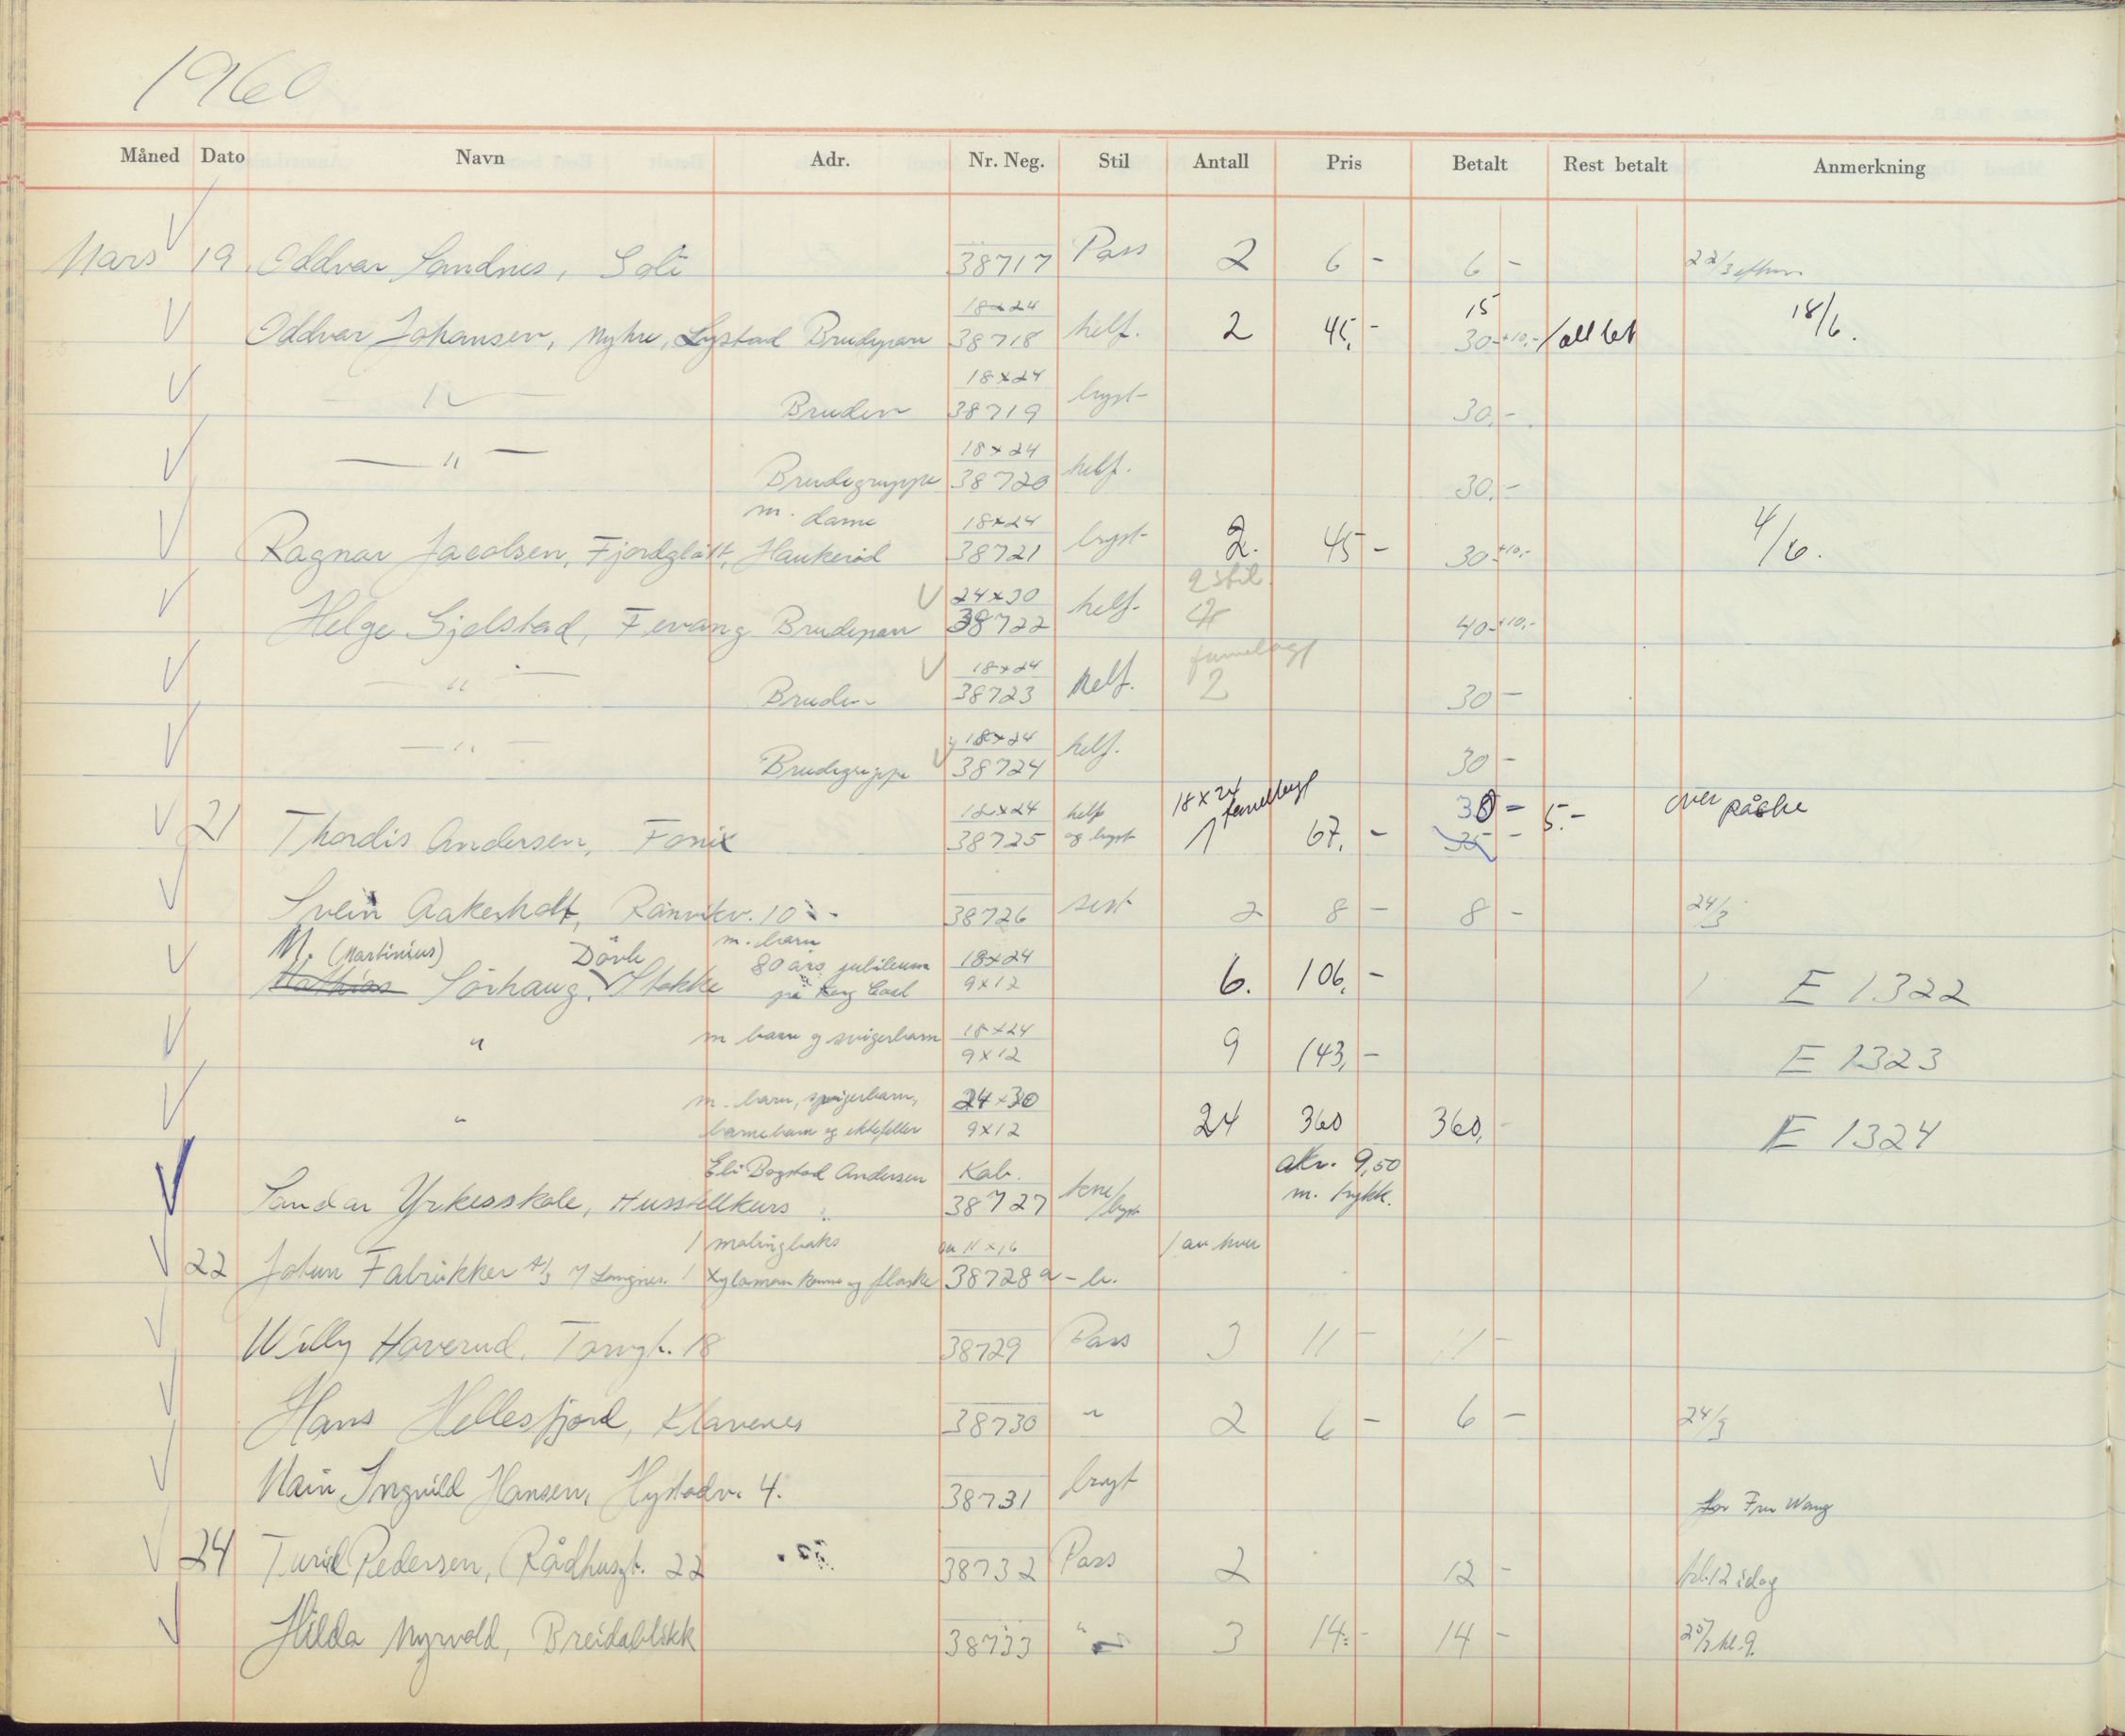 1960
Måned Dato Navn Adr. Nr. Neg. Stil Antall Pris Betalt Rest betalt Anmerkning
Mars 19 Oddvar Sandnes, Soli 38717 Pass 2 6 - 6 - 22/3
18x24 15 18/6.
Oddvar Johansen, Myhre, Lystad Brudepar 38718 helf. 2 45,- 30-+10,- / all bet
18x24
— " — Bruden 38719 bryst 30,-
18x24
— " — Brudegruppe 38720 helf. 30,-
m. dame 18x24
Ragnar Jacobsen, Fjordglått, Haukerød 38721 bryst 2. 45 - 30-+10,- 4/6.
24x30 2 stil
Helge Gjelstad, Fevang Brudepar 38722 helf. 40-+10,-
18x24
— " — Bruden 38723 helf. 2 30 -
18x24
— " — Brudegruppe 38724 helf. 30 -
18x24 helf 18x24 30 - over påske
21 Thordis Andersen, Fonix 38725 og bryst 1 67,- 35 - 5.-
Svein Aakerholt, Ranvikv. 10 38726 2 8 - 8 - 24/3
M. (Martinius) Dövle m. barn
80 års jubileum 18x24
Mathias Sörhaug, Stokke på 9x12 6. 106,- E 1322
" m barn og svigerbarn 18x24
9x12 9 143,- E 1323
" m. barn, svigerbarn, 24x30
barnebarn og ektefeller 9x12 24 360 360,- E 1324
Eli Bogstad Andersen Kab. akr. 9,50
Sandar Yrkesskole, Husstellkurs 38727 kne/bryst m. trykk.
1 malingboks 11x16 1 av hver
22 Jotun Fabrikker A/S 1 Xylamon kanne og flaske 38728 a - b.
Willy Haverud, Torvgt. 18 38729 Pass 3 11 - 11 -
Hans Hellesfjord, Klavenes 38730 " 2 6 - 6 - 24/3
Ingvild Hansen, Hystadv. 4. 38731 bryst for Fru Wang
24 Turid Pedersen, Rådhusgt. 22 38732 Pass 2 12 - kl. 12 idag
Hilda Myrvold, Breidablikk 38733 " 3 14,- 14 - 25/3 kl. 9.